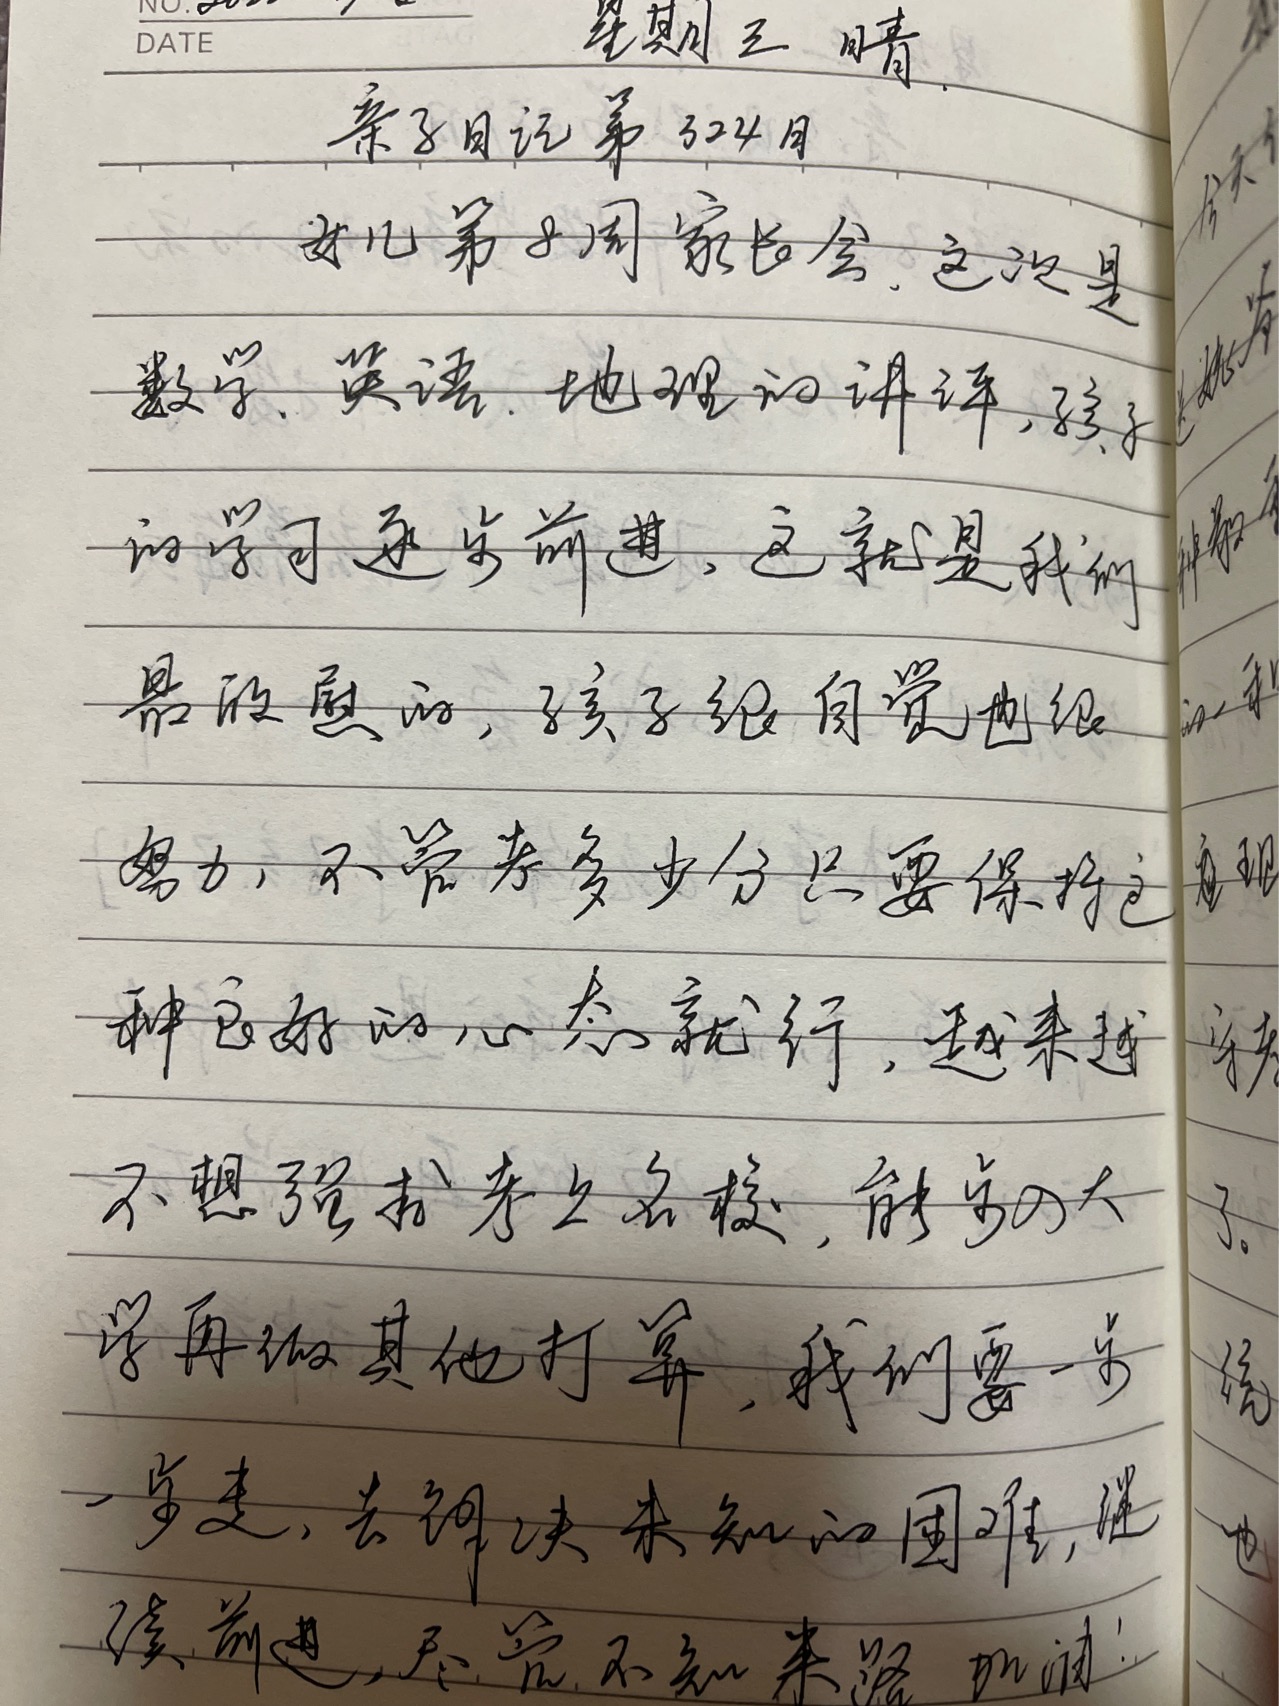 NO.
DATE
星期三 晴.
亲子日记第324日
女儿第8周家长会、这次是
数学、英语、地理的讲评,孩子
的学习逐步前进,这就是我们
最欣慰的,孩子很自觉也很
努力,不管考多少分只要保持这
种良好的心态就行,越来越
不想强求考上名校,能步入大
学再做其他打算,我们要一步
一步走,去解决未知的困难,继
续前进,尽管不知来路 加油!
今天
种
的一
了。
也